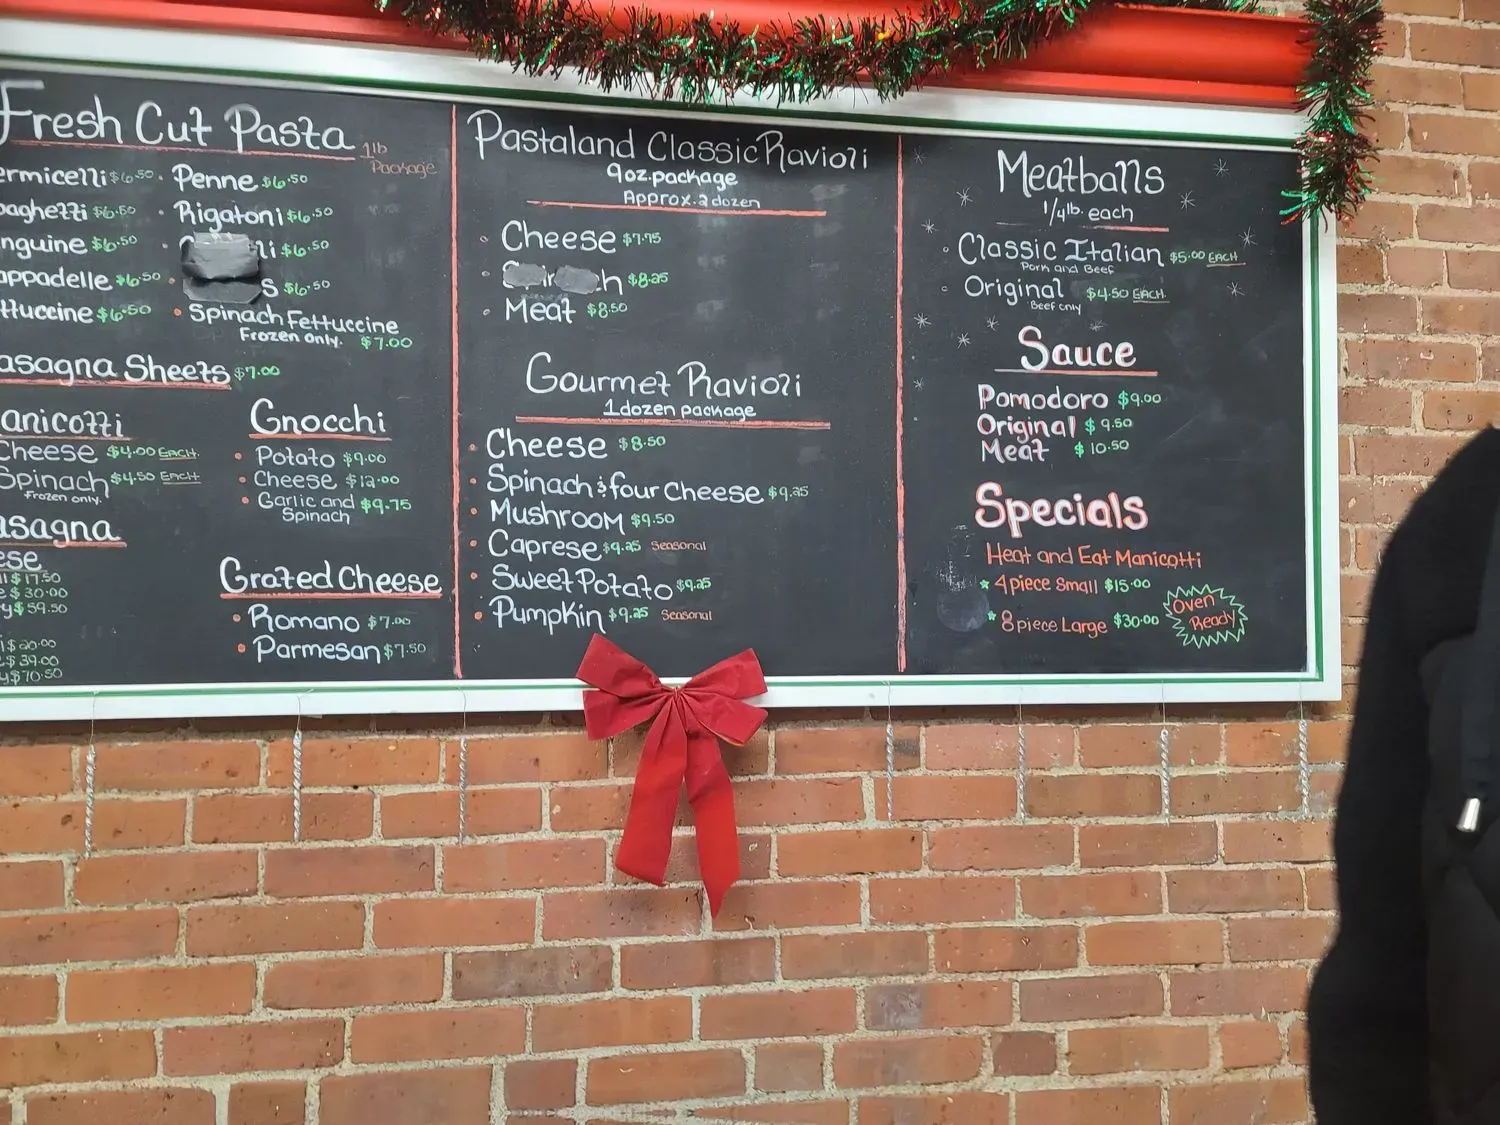 Fresh Cut Pasta 1lb Package
ermicelli $6.50 • Penne $6.50
paghetti $6.50 • Rigatoni $6.50
nguine $6.50 • li $6.50
appadelle $6.50 s $6.50
ttuccine $6.50 • Spinach Fettuccine
Frozen only. $7.00
asagna Sheets $7.00
anicotti
Cheese $4.00 EACH.
Spinach $4.50 EACH.
Frozen only.
asagna
ese
$17.50
e $30.00
y $59.50
$20.00
$39.00
y $70.50
Gnocchi
• Potato $9.00
• Cheese $12.00
• Garlic and $9.75
Spinach
Grated Cheese
• Romano $7.00
• Parmesan $7.50
Pastaland Classic Ravioli
9oz. package
Approx. 2 dozen
• Cheese $7.75
• ch $8.25
• Meat $8.50
Gourmet Ravioli
1 dozen package
• Cheese $8.50
• Spinach & four Cheese $9.25
• Mushroom $9.50
• Caprese $9.25 Seasonal
• Sweet Potato $9.25
• Pumpkin $9.25 Seasonal
Meatballs
1/4lb. each
• Classic Italian $5.00 EACH
Pork and Beef
• Original $4.50 EACH.
Beef only
Sauce
Pomodoro $9.00
Original $9.50
Meat $10.50
Specials
Heat and Eat Manicotti
* 4 piece Small $15.00
* 8 piece Large $30.00
Oven
Ready